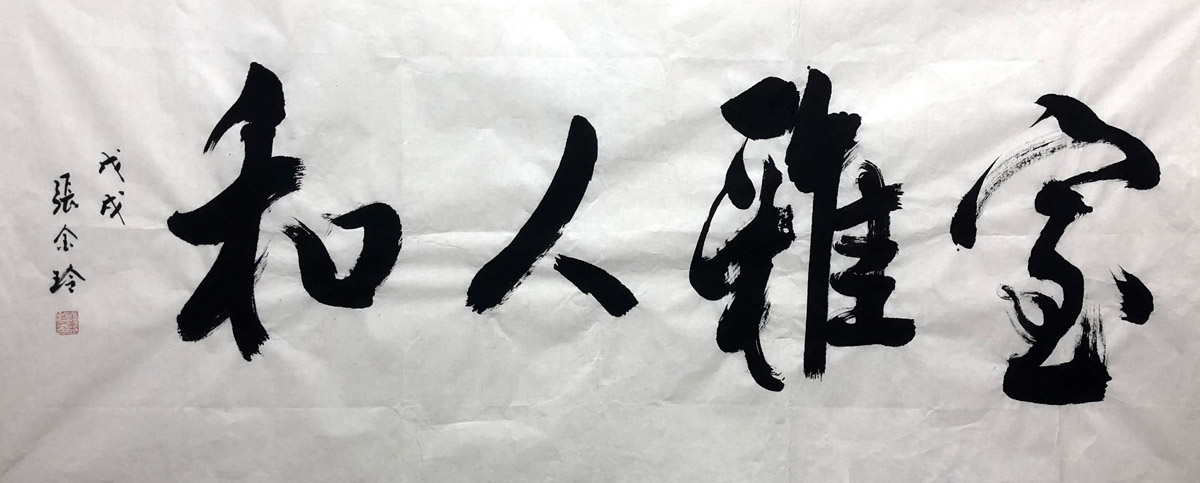 室雅人和
戊戌
張金玲